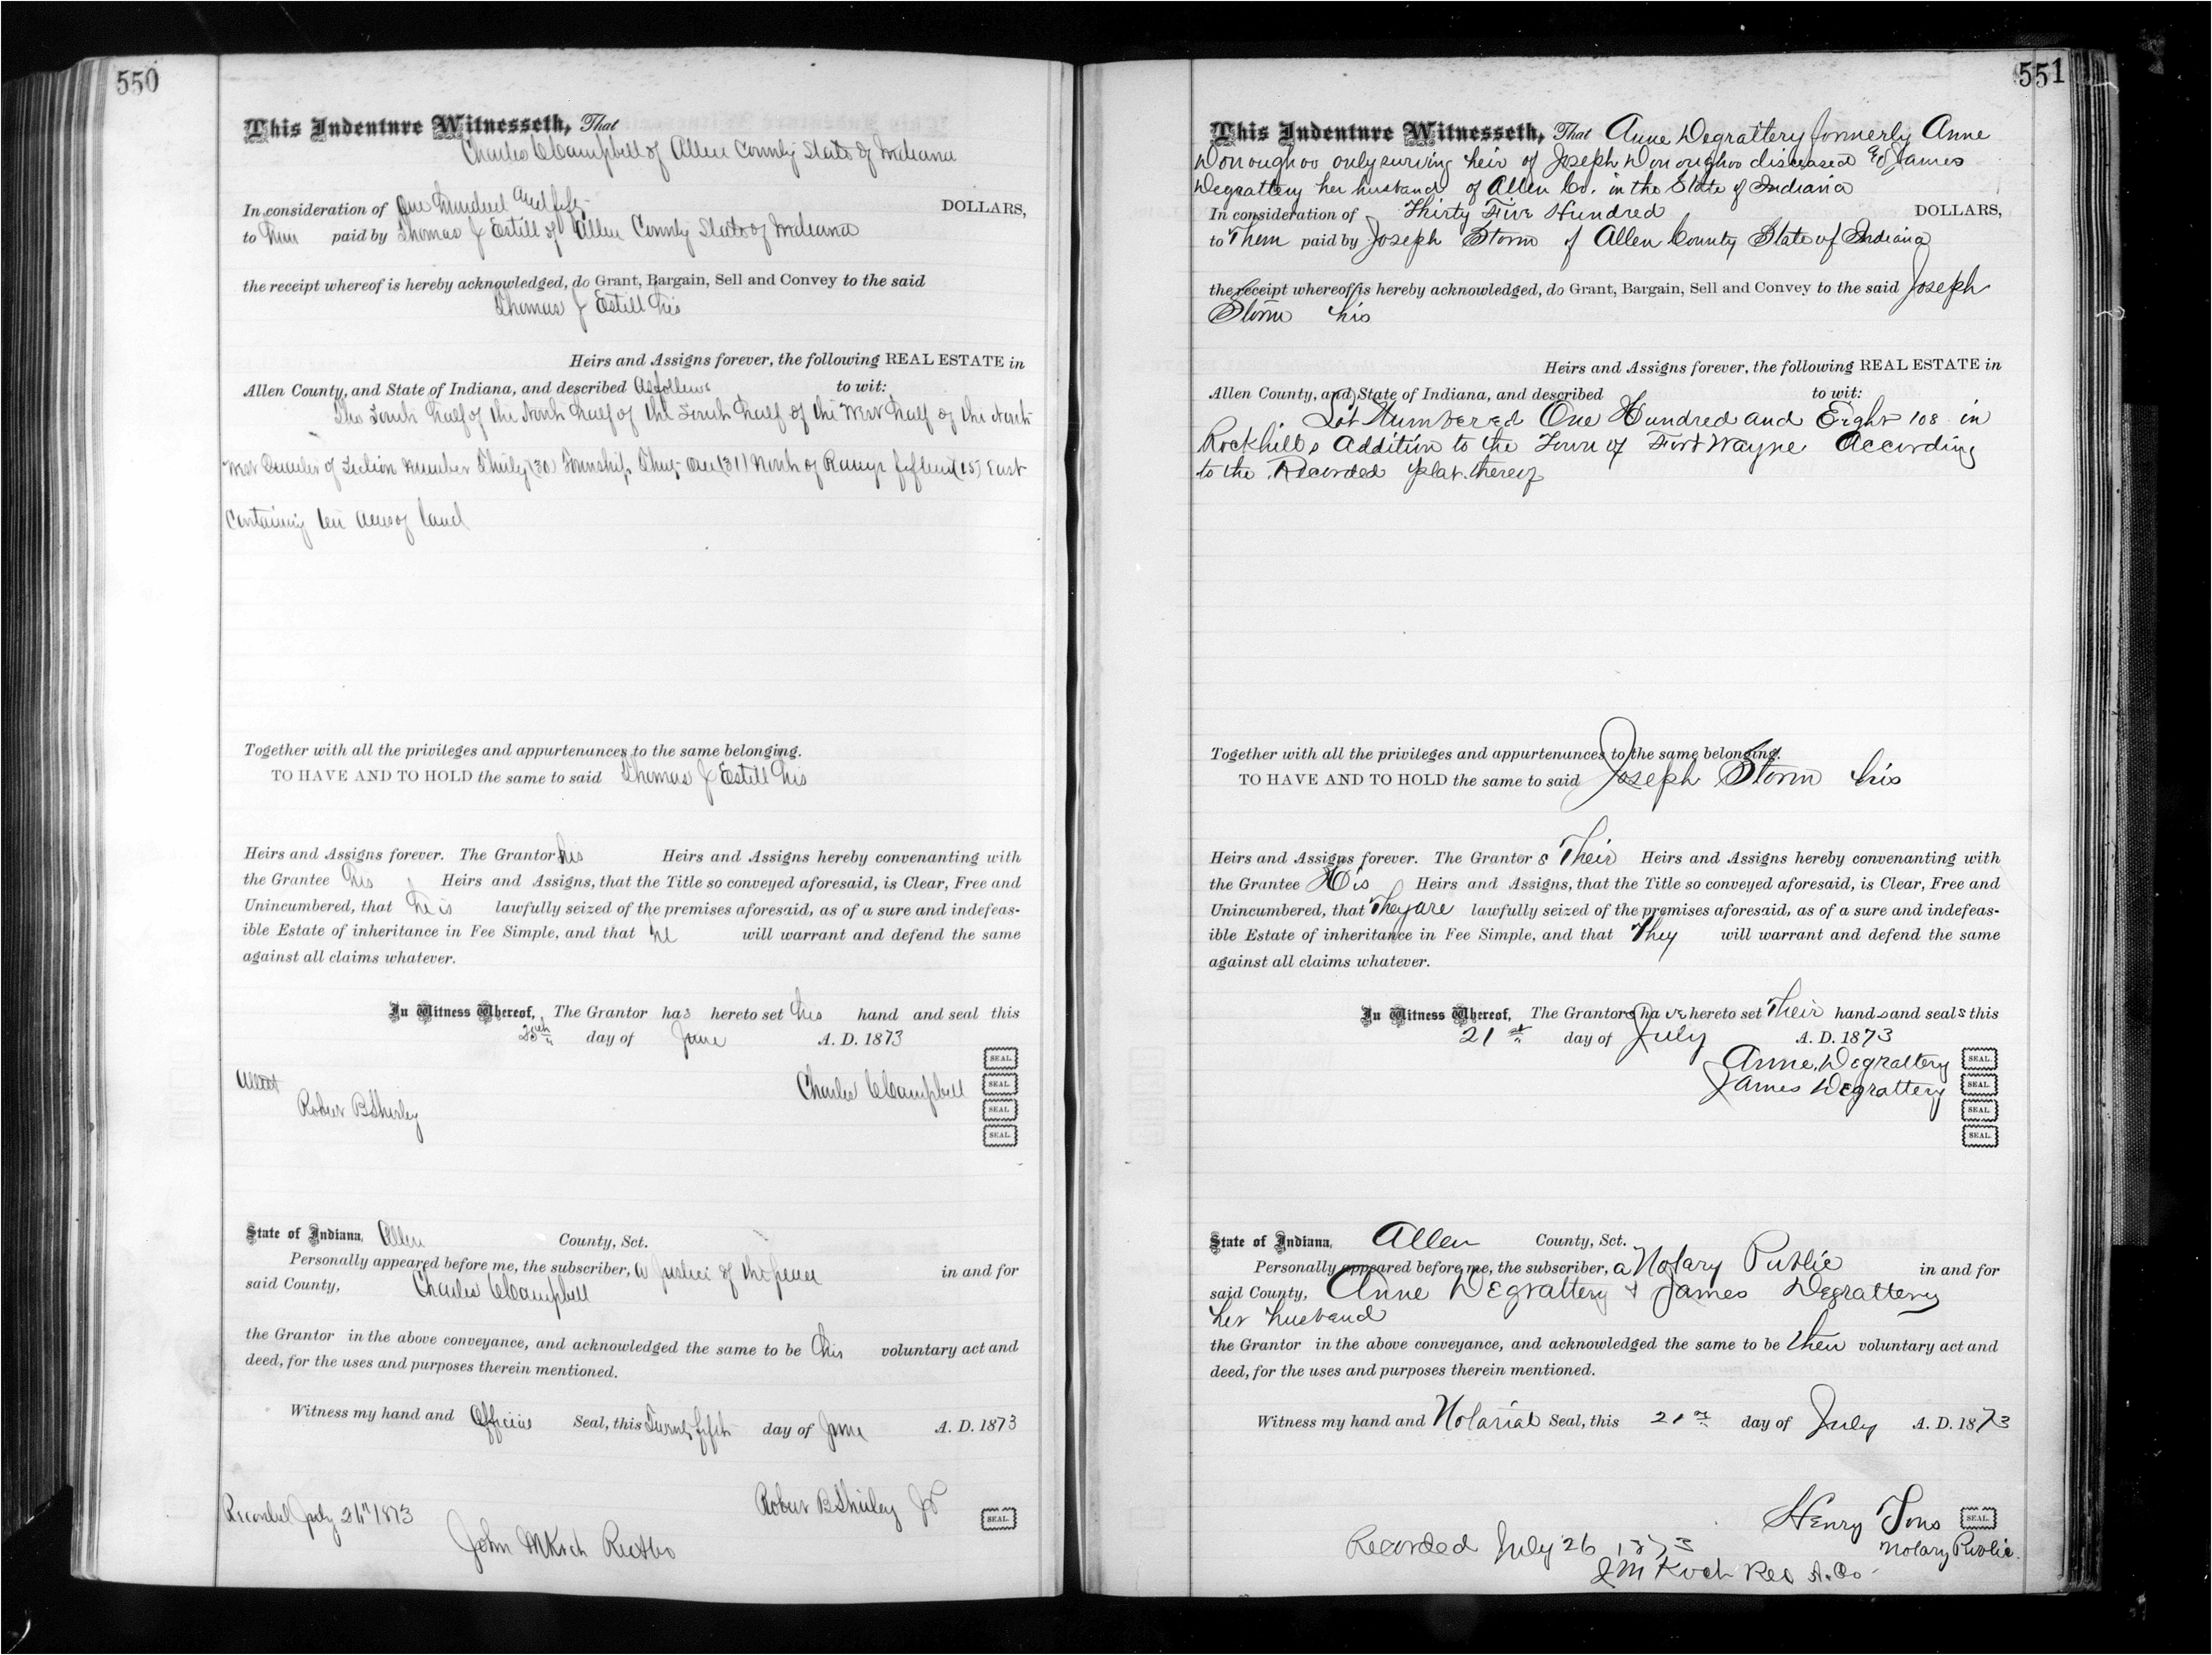 550
This Indenture Witnesseth, That
Charles C Campbell of Allen County State of Indiana
In consideration of One Hundred and fifty DOLLARS,
to him paid by Thomas J Estill of Allen County State of Indiana
the receipt whereof is hereby acknowledged, do Grant, Bargain, Sell and Convey to the said
Thomas J Estill his
Heirs and Assigns forever, the following REAL ESTATE in
Allen County, and State of Indiana, and described as follows to wit:
The South half of the North half of the South half of the West half of the North
West Quarter of Section Number Thirty (30) Township Thirty One (31) North of Range fifteen (15) East
Containing ten acres of land
Together with all the privileges and appurtenances to the same belonging.
TO HAVE AND TO HOLD the same to said Thomas J Estill his
Heirs and Assigns forever. The Grantor his Heirs and Assigns hereby convenanting with
the Grantee his Heirs and Assigns, that the Title so conveyed aforesaid, is Clear, Free and
Unincumbered, that he is lawfully seized of the premises aforesaid, as of a sure and indefeas-
ible Estate of inheritance in Fee Simple, and that he will warrant and defend the same
against all claims whatever.
In Witness Whereof, The Grantor has hereto set his hand and seal this
25th day of June A. D. 1873
SEAL.
Attest Charles C Campbell SEAL.
Robert B Shirley SEAL.
SEAL.
State of Indiana, Allen County, Sct.
Personally appeared before me, the subscriber, a Justice of the peace in and for
said County, Charles C Campbell
the Grantor in the above conveyance, and acknowledged the same to be his voluntary act and
deed, for the uses and purposes therein mentioned.
Witness my hand and Official Seal, this Twenty fifth day of June A. D. 1873
Robert B Shirley JP SEAL.
Recorded July 26" 1873
John M Koch Rec A Co
551
This Indenture Witnesseth, That Anne Degrattery formerly Anne
Donoughoo only surving heir of Joseph Donoughoo disceased & James
Degrattery her husband of Allen Co. in the State of Indiana
In consideration of Thirty Five Hundred DOLLARS,
to Them paid by Joseph Storm of Allen County State of Indiana
the receipt whereof is hereby acknowledged, do Grant, Bargain, Sell and Convey to the said Joseph
Storm his
Heirs and Assigns forever, the following REAL ESTATE in
Allen County, and State of Indiana, and described to wit:
Lot Numbered One Hundred and Eight 108 in
Rockhills Addition to the Town of Fort Wayne According
to the Recorded plat thereof
Together with all the privileges and appurtenances to the same belonging.
TO HAVE AND TO HOLD the same to said Joseph Storm his
Heirs and Assigns forever. The Grantor s Their Heirs and Assigns hereby convenanting with
the Grantee His Heirs and Assigns, that the Title so conveyed aforesaid, is Clear, Free and
Unincumbered, that They are lawfully seized of the premises aforesaid, as of a sure and indefeas-
ible Estate of inheritance in Fee Simple, and that They will warrant and defend the same
against all claims whatever.
In Witness Whereof, The Grantors have hereto set Their hands and seals this
21st day of July A. D. 1873
Anne Degrattery SEAL.
James Degrattery SEAL.
SEAL.
SEAL.
State of Indiana, Allen County, Sct.
Personally appeared before me, the subscriber, a Notary Public in and for
said County, Anne Degrattery & James Degrattery
her husband
the Grantor in the above conveyance, and acknowledged the same to be their voluntary act and
deed, for the uses and purposes therein mentioned.
Witness my hand and Notarial Seal, this 21st day of July A. D. 1873
Henry Tons SEAL.
Notary Public.
Recorded July 26 1873
J M Koch Rec A. Co.